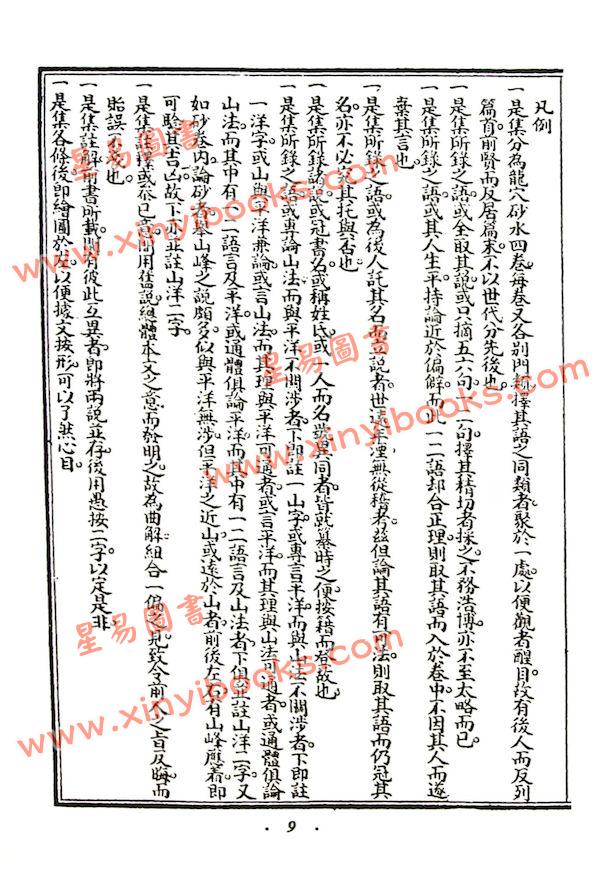 凡例
一是集分為龍穴砂水四卷每卷又各別門類擇其語之同類者聚於一處以便觀者醒目故有後人而反列
篇首前賢而反居篇末不以世代分先後也
一是集所錄之語或全取其說或只摘五六句一二句擇其精切者採之不務浩博亦不至太略而已
一是集所錄之語或其人生平持論近於偏僻而此一二語却合正理則取其語而入於卷中不因其人而遂
棄其言也
一是集所錄之語或為後人託其名而立說者世遠年湮無從稽考茲但論其語有可法則取其語而仍冠其
名亦不必究其托與否也
一是集所錄諸說或冠書名或稱姓氏或一人而名號異同者皆就纂時之便按籍而登故也
一是集所錄之語或專論山法而與平洋不關涉者下即註一山字或專言平洋而與山法不關涉者下即註
一洋字或山與平洋兼論或言山法而其理與平洋可通者或言平洋而其理與山法可通者或通體俱論
山法而其中有一二語言及平洋或通體俱論平洋而其中有一二語言及山法者下俱並註山洋二字又
如砂卷內論砂者舉山峰之說頗多似與平洋無涉但平洋之近山或遠於山者前後左右有山峰應着即
可驗其吉凶故下亦並註山洋二字
一是集註釋或參己意間用舊說總體本文之意而發明之故為曲解組合一偏之見致令前人之旨反晦而
貽誤不淺也
一是集註解前書所載間有彼此互異者即將兩說並存後用愚按二字以定是非
一是集各條後即繪圖於左以便據文按形可以了然心目
星易圖書
www.xinyibooks.com
星易圖書
www.xinyibooks.com
星易圖書
www.xinyibooks.com
星易圖書
www.xinyibooks.com
· 9 ·